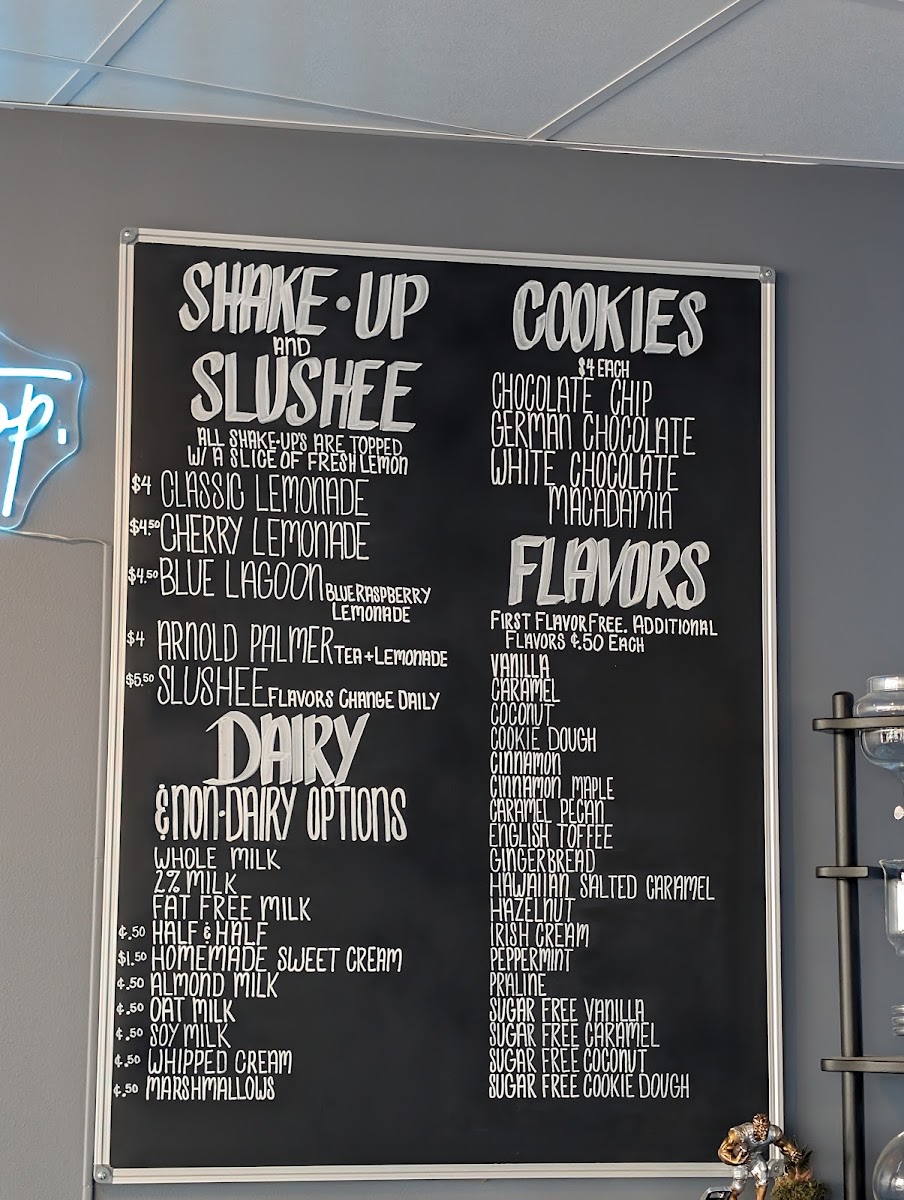 op.
SHAKE·UP
AND
SLUSHEE
ALL SHAKE-UP'S ARE TOPPED
W/ A SLICE OF FRESH LEMON
$4 CLASSIC LEMONADE
$4.50 CHERRY LEMONADE
$4.50 BLUE LAGOON BLUE RASPBERRY
LEMONADE
$4 ARNOLD PALMER TEA + LEMONADE
$5.50 SLUSHEE FLAVORS CHANGE DAILY
DAIRY
& NON-DAIRY OPTIONS
WHOLE MILK
2% MILK
FAT FREE MILK
¢.50 HALF & HALF
$1.50 HOMEMADE SWEET CREAM
¢.50 ALMOND MILK
¢.50 OAT MILK
¢.50 SOY MILK
¢.50 WHIPPED CREAM
¢.50 MARSHMALLOWS
COOKIES
$4 EACH
CHOCOLATE CHIP
GERMAN CHOCOLATE
WHITE CHOCOLATE
MACADAMIA
FLAVORS
FIRST FLAVOR FREE. ADDITIONAL
FLAVORS ¢.50 EACH
VANILLA
CARAMEL
COCONUT
COOKIE DOUGH
CINNAMON
CINNAMON MAPLE
CARAMEL PECAN
ENGLISH TOFFEE
GINGERBREAD
HAWAIIAN SALTED CARAMEL
HAZELNUT
IRISH CREAM
PEPPERMINT
PRALINE
SUGAR FREE VANILLA
SUGAR FREE CARAMEL
SUGAR FREE COCONUT
SUGAR FREE COOKIE DOUGH